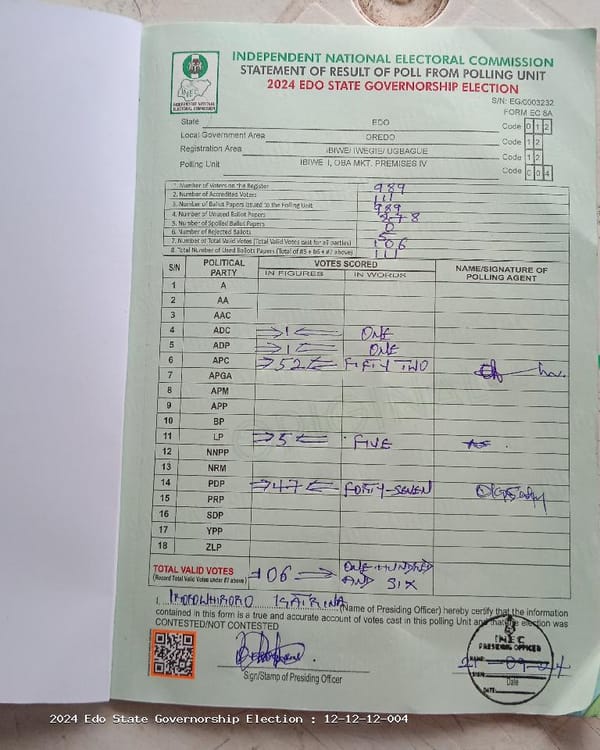 INDEPENDENT NATIONAL ELECTORAL COMMISSION
STATEMENT OF RESULT OF POLL FROM POLLING UNIT
2024 EDO STATE GOVERNORSHIP ELECTION
S/N: EG/0003232
FORM EC 8A
INEC
INDEPENDENT NATIONAL ELECTORAL COMMISSION
State EDO Code 0 1 2
Local Government Area OREDO Code 1 2
Registration Area IBIWE/ IWEGIE/ UGBAGUE Code 1 2
Polling Unit IBIWE I, OBA MKT. PREMISES IV Code 0 0 4
1. Number of Voters on the Register 989
2. Number of Accredited Voters 111
3. Number of Ballot Papers Issued to the Polling Unit 989
4. Number of Unused Ballot Papers 878
5. Number of Spoiled Ballot Papers 0
6. Number of Rejected Ballots 5
7. Number of Total Valid Votes (Total Valid Votes cast for all parties) 106
8. Total Number of Used Ballots Papers (Total of #5 + #6 + #7 above) 111
S/N POLITICAL PARTY VOTES SCORED NAME/SIGNATURE OF POLLING AGENT
IN FIGURES IN WORDS
1 A
2 AA
3 AAC
4 ADC 1 ONE
5 ADP 1 ONE
6 APC 52 FIFTY TWO
7 APGA
8 APM
9 APP
10 BP
11 LP 5 FIVE
12 NNPP
13 NRM
14 PDP 47 FORTY-SEVEN
15 PRP
16 SDP
17 YPP
18 ZLP
TOTAL VALID VOTES 106 ONE HUNDRED AND SIX
(Record Total Valid Votes under #7 above)
I, (Name of Presiding Officer) hereby certify that the information
contained in this form is a true and accurate account of votes cast in this polling Unit and that the election was
CONTESTED/NOT CONTESTED
INEC
PRESIDING OFFICER
NAME:
SIGN:
DATE:
21-09-24
Sign/Stamp of Presiding Officer
Date
2024 Edo State Governorship Election : 12-12-12-004